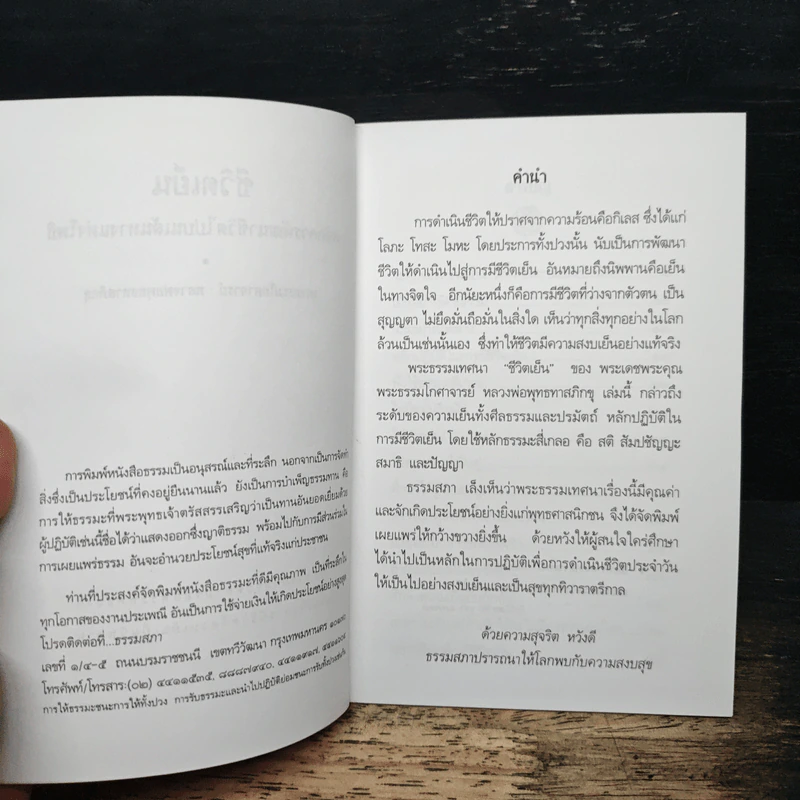 การพิมพ์หนังสือธรรมเป็นอนุสรณ์และที่ระลึก นอกจากเป็นการจัดทำ
สิ่งซึ่งเป็นประโยชน์ที่คงอยู่ยืนนานแล้ว ยังเป็นการบำเพ็ญธรรมทาน คือ
การให้ธรรมะที่พระพุทธเจ้าตรัสสรรเสริญว่าเป็นทานอันยอดเยี่ยมด้วย
ผู้ปฏิบัติเช่นนี้ชื่อได้ว่าแสดงออกซึ่งญาติธรรม พร้อมไปกับการมีส่วนร่วมใน
การเผยแพร่ธรรม อันจะอำนวยประโยชน์สุขที่แท้จริงแก่ประชาชน
ท่านที่ประสงค์จัดพิมพ์หนังสือธรรมะที่ดีมีคุณภาพ เป็นที่ระลึกใน
ทุกโอกาสของงานประเพณี อันเป็นการใช้จ่ายเงินให้เกิดประโยชน์อย่างสูงสุด
โปรดติดต่อที่...ธรรมสภา
เลขที่ ๑/๔-๕ ถนนบรมราชชนนี เขตทวีวัฒนา กรุงเทพมหานคร ๑๐๑๗๐
โทรศัพท์/โทรสาร:(๐๒) ๔๔๑๑๕๓๕, ๘๘๘๗๙๔๐, ๔๔๑๑๙๑๗,
การให้ธรรมะชนะการให้ทั้งปวง การรับธรรมะและนำไปปฏิบัติย่อมชนะการรับทั้งปวงเช่นกัน
คำนำ
การดำเนินชีวิตให้ปราศจากความร้อนคือกิเลส ซึ่งได้แก่
โลภะ โทสะ โมหะ โดยประการทั้งปวงนั้น นับเป็นการพัฒนา
ชีวิตให้ดำเนินไปสู่การมีชีวิตเย็น อันหมายถึงนิพพานคือเย็น
ในทางจิตใจ อีกนัยหนึ่งก็คือการมีชีวิตที่ว่างจากตัวตน เป็น
สุญญตา ไม่ยึดมั่นถือมั่นในสิ่งใด เห็นว่าทุกสิ่งทุกอย่างในโลก
ล้วนเป็นเช่นนั้นเอง ซึ่งทำให้ชีวิตมีความสงบเย็นอย่างแท้จริง
พระธรรมเทศนา "ชีวิตเย็น" ของ พระเดชพระคุณ
พระธรรมโกศาจารย์ หลวงพ่อพุทธทาสภิกขุ เล่มนี้ กล่าวถึง
ระดับของความเย็นทั้งศีลธรรมและปรมัตถ์ หลักปฏิบัติใน
การมีชีวิตเย็น โดยใช้หลักธรรมะสี่เกลอ คือ สติ สัมปชัญญะ
สมาธิ และปัญญา
ธรรมสภา เล็งเห็นว่าพระธรรมเทศนาเรื่องนี้มีคุณค่า
และจักเกิดประโยชน์อย่างยิ่งแก่พุทธศาสนิกชน จึงได้จัดพิมพ์
เผยแพร่ให้กว้างขวางยิ่งขึ้น ด้วยหวังให้ผู้สนใจใคร่ศึกษา
ได้นำไปเป็นหลักในการปฏิบัติเพื่อการดำเนินชีวิตประจำวัน
ให้เป็นไปอย่างสงบเย็นและเป็นสุขทุกทิวาราตรีกาล
ด้วยความสุจริต หวังดี
ธรรมสภาปรารถนาให้โลกพบกับความสงบสุข